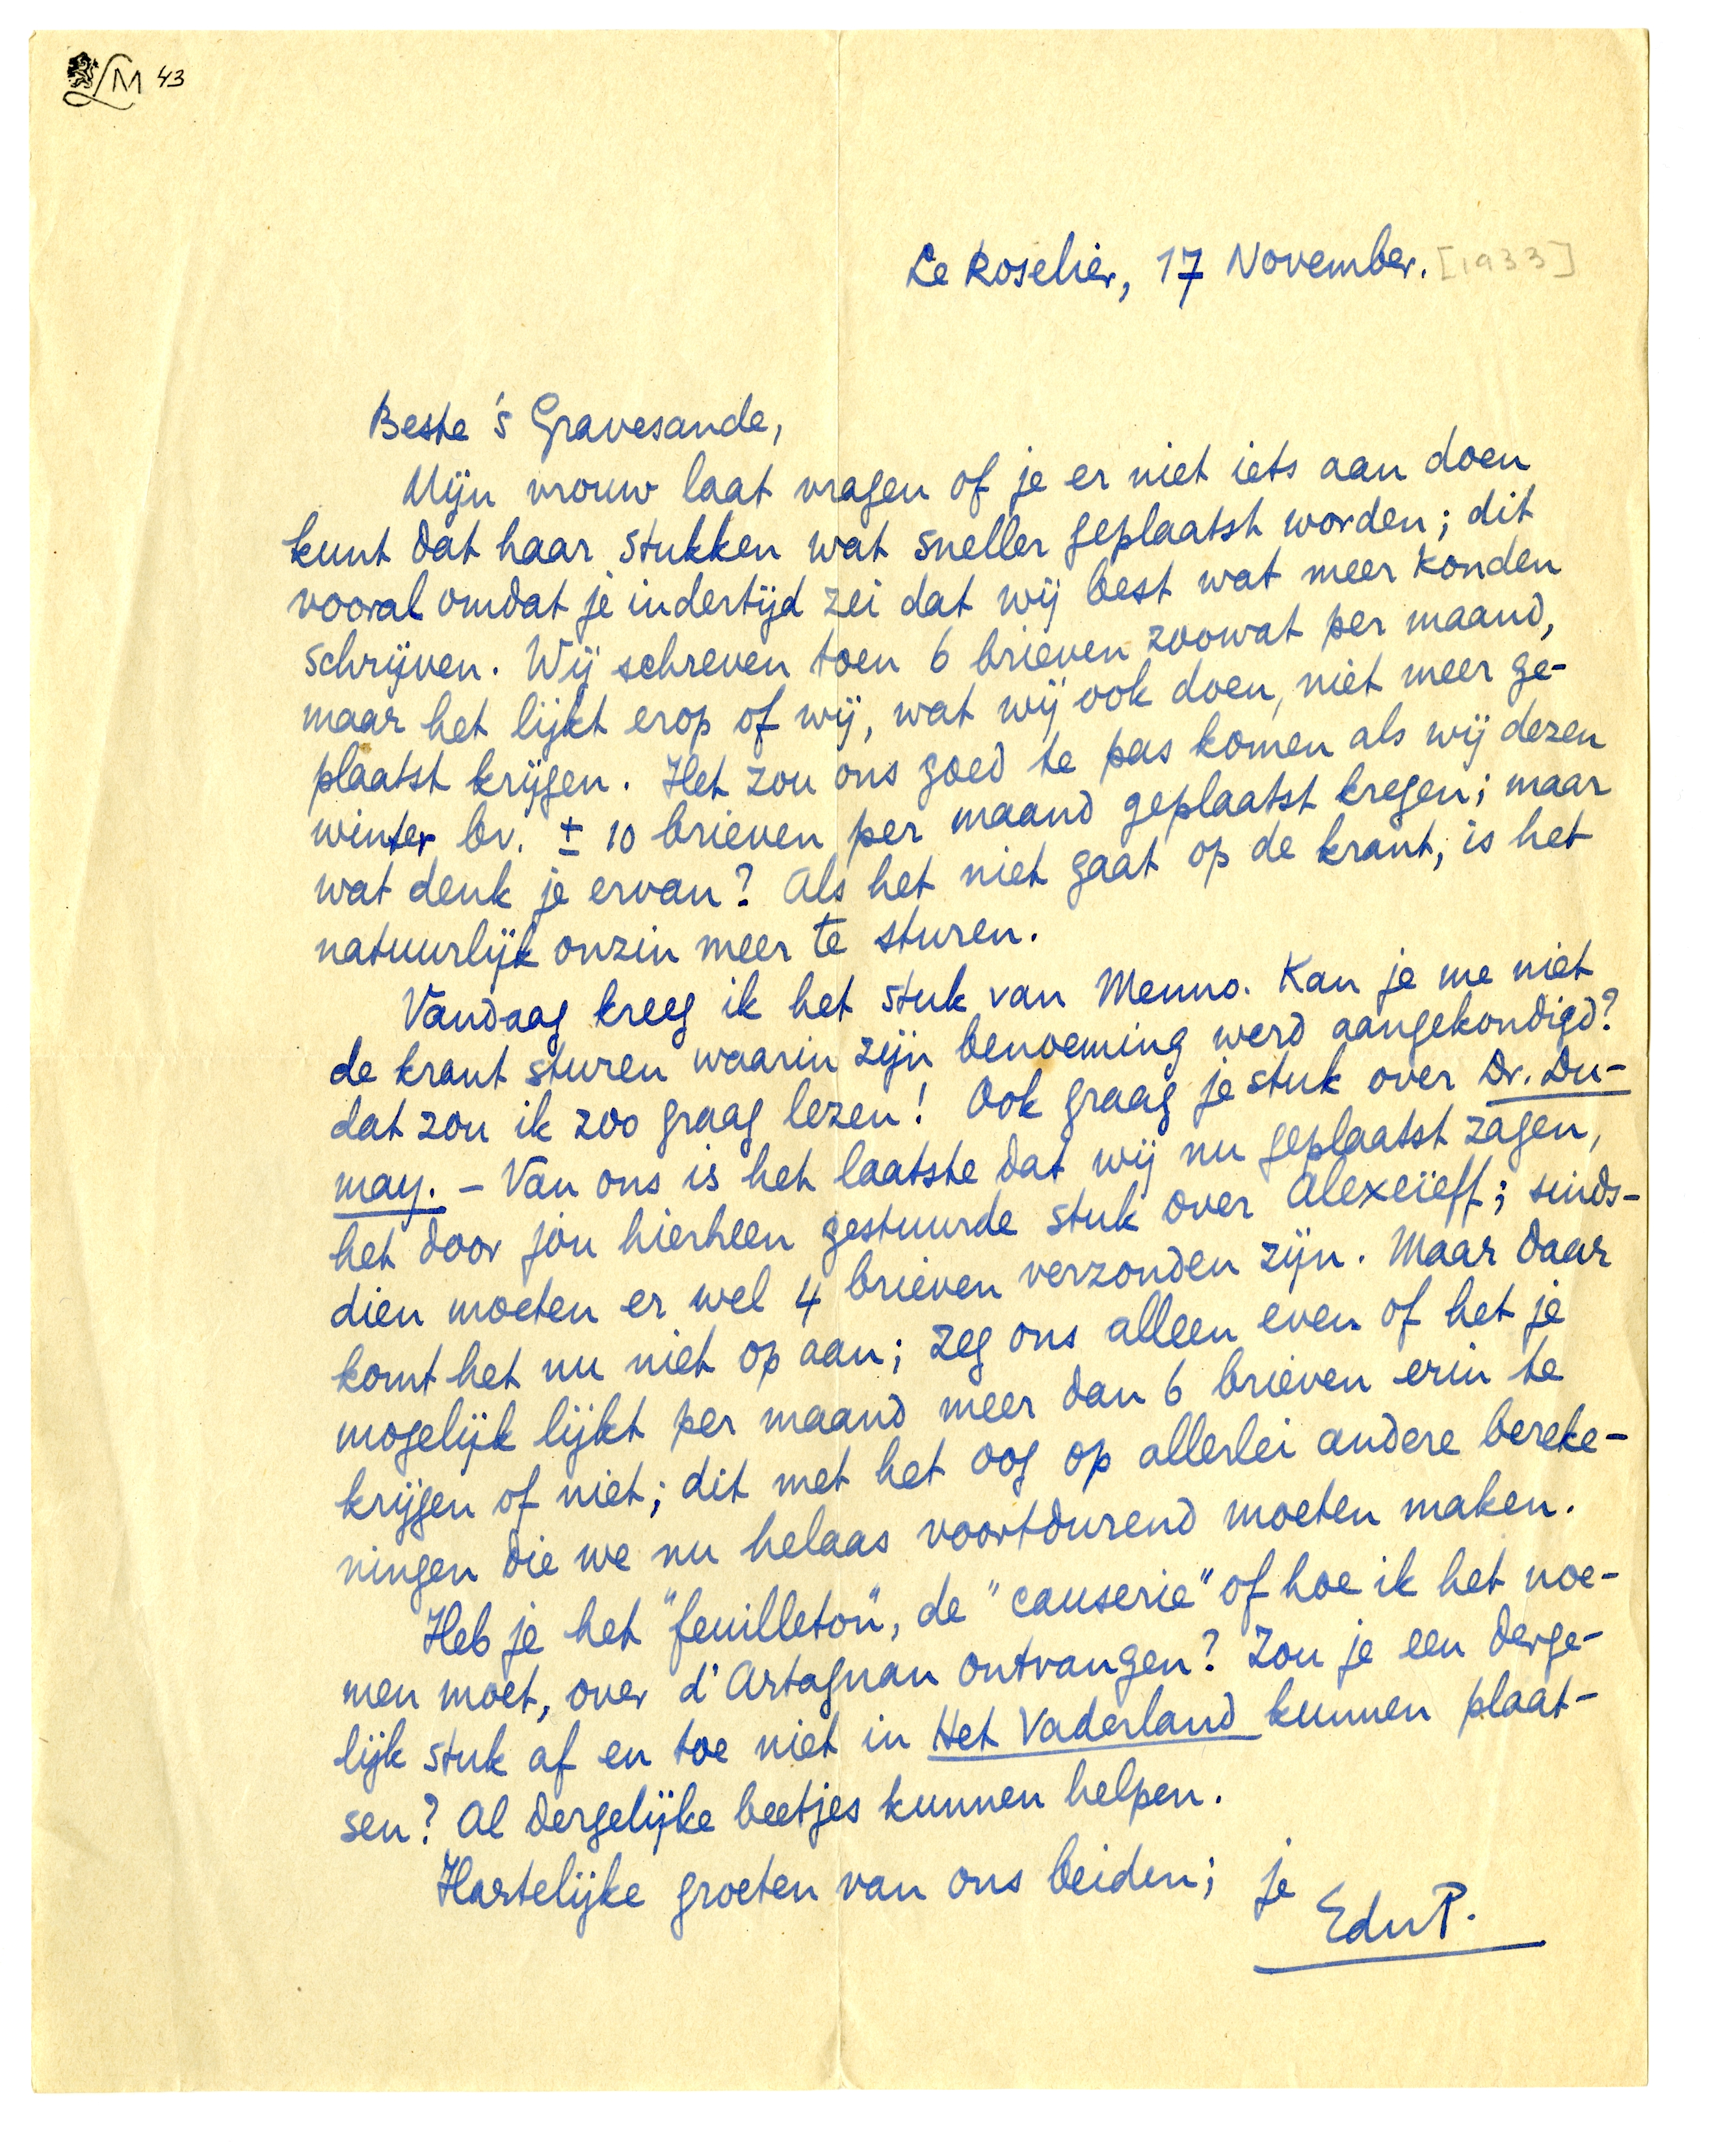 LM 43
Le Roselier, 17 November. [1933]
Beste 's Gravesande,
Mijn vrouw laat vragen of je er niet iets aan doen
kunt dat haar stukken wat sneller geplaatst worden; dit
vooral omdat je indertijd zei dat wij best wat meer konden
schrijven. Wij schreven toen 6 brieven zoowat per maand,
maar het lijkt erop of wij, wat wij ook doen, niet meer ge-
plaatst krijgen. Het zou ons goed te pas komen als wij dezen
winter bv. ± 10 brieven per maand geplaatst kregen; maar
wat denk je ervan? Als het niet gaat op de krant, is het
natuurlijk onzin meer te sturen.
Vandaag kreeg ik het stuk van Menno. Kan je me niet
de krant sturen waarin zijn benoeming werd aangekondigd?
dat zou ik zoo graag lezen! Ook graag je stuk over Dr. Du-
may. – Van ons is het laatste dat wij nu geplaatst zagen,
het door jou hierheen gestuurde stuk over Alexeïeff; sinds-
dien moeten er wel 4 brieven verzonden zijn. Maar daar
komt het nu niet op aan; zeg ons alleen even of het je
mogelijk lijkt per maand meer dan 6 brieven erin te
krijgen of niet; dit met het oog op allerlei andere bereke-
ningen die we nu helaas voortdurend moeten maken.
Heb je het "feuilleton", de "causerie" of hoe ik het noe-
men moet, over d'Artagnan ontvangen? Zou je een derge-
lijk stuk af en toe niet in Het Vaderland kunnen plaat-
sen? Al dergelijke beetjes kunnen helpen.
Hartelijke groeten van ons beiden; je
EduP.